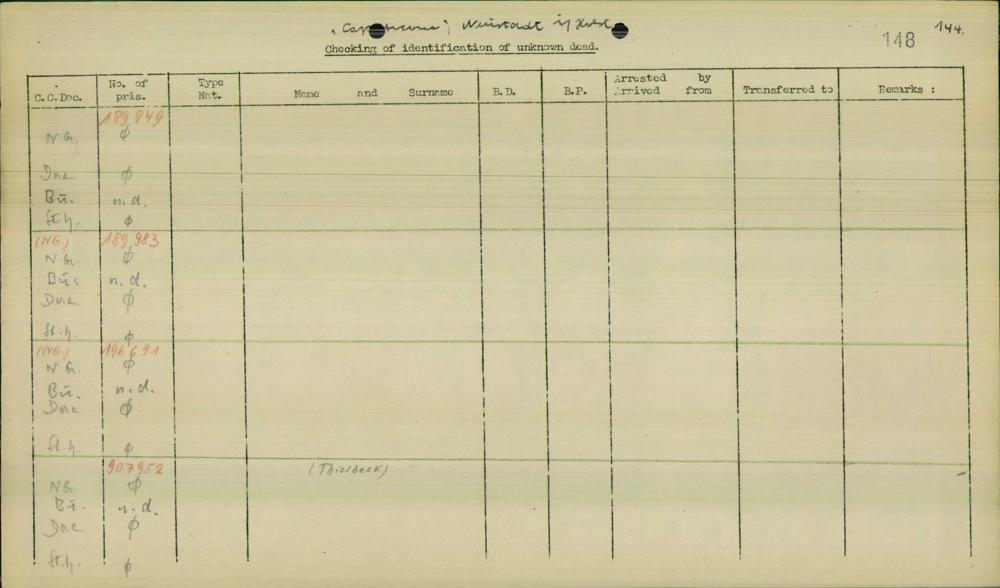 Neustadt i/Holst
144.
148
Checking of identification of unknown dead.
C.C.Doc. No. of pris. Type Nat. Name and Surname B.D. B.P. Arrested by Arrived from Transferred to Remarks :
189 949
N G. ϕ
Dora ϕ
Bū. n.d.
St.h. ϕ
(NG.) 189 983
N G. ϕ
Bū. n.d.
Dora ϕ
St.h. ϕ
(NG.) 196 691
N G. ϕ
Bū. n.d.
Dora ϕ
St.h. ϕ
907952 (Thielbeck)
NG. ϕ
Bū. n.d.
Dora ϕ
St.h. ϕ